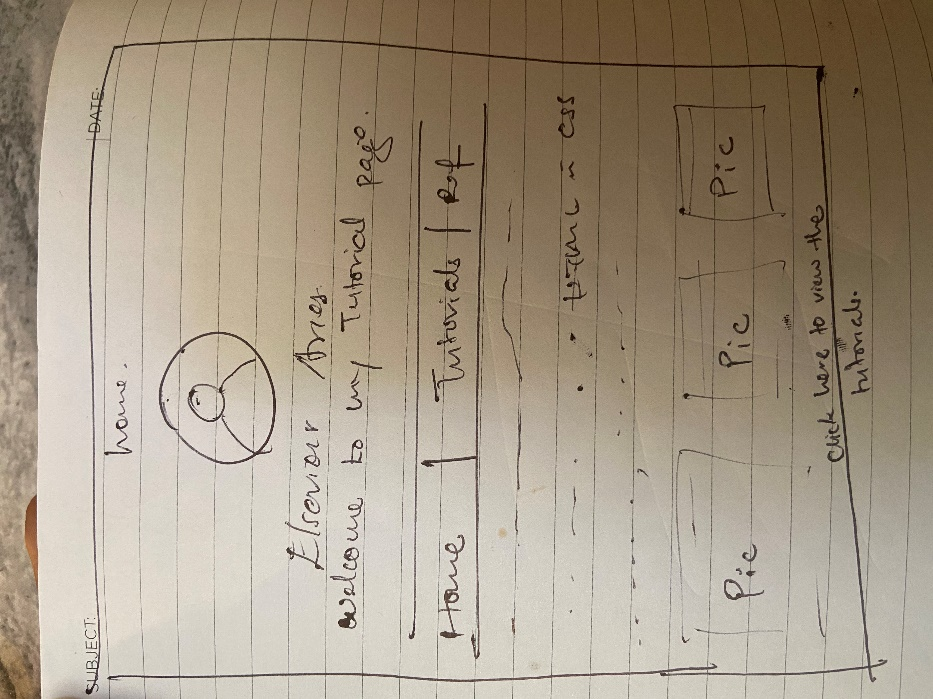 SUBJECT: DATE:
home.
Elsaviour Aries
welcome to my Tutorial page.
Home | Tutorials | Ref
HTML n CSS
Pic Pic Pic
Click here to view the
tutorials.